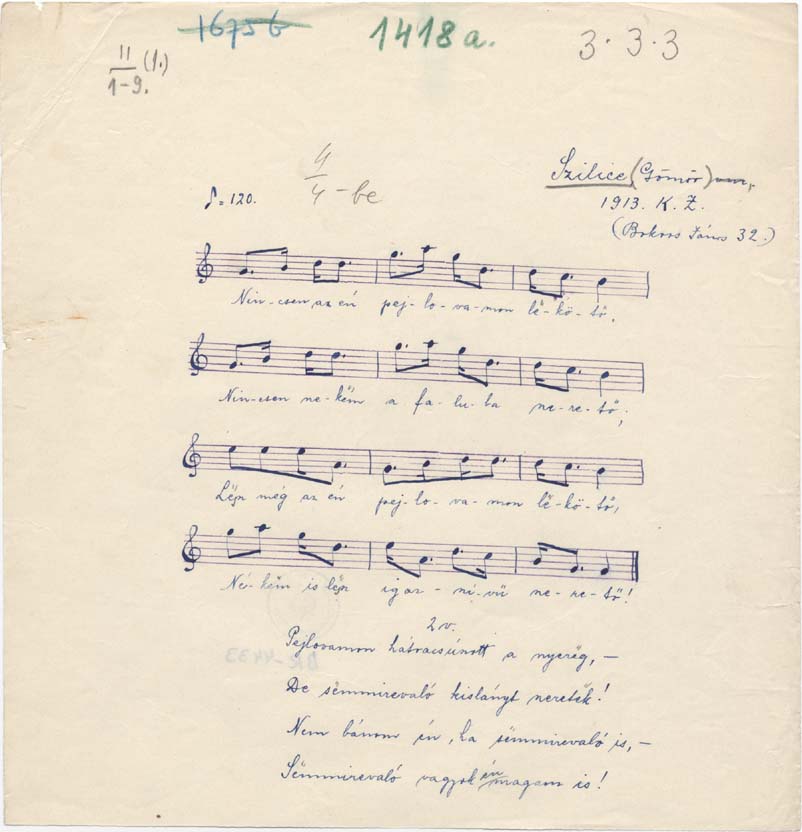 1675 b
1418 a.
3.3.3
II/1-9. (1.)
4/4 -be
♪= 120.
Szilice (Gömör)
1913. K. Z.
(Bokros János 32.)
Nin-csen az én pej-lo-va-mon lë-kö-tő,
Nin-csen ne-këm a fa-lu-ba ne-re-tő;
Lësz még az én pej-lo-va-mon lë-kö-tő,
Né-këm is lësz igaz-ní-vü ne-re-tő!
2 v.
Pejlovamon hátracsúnott a nyerëg, –
De sëmmirevaló kislányt neretëk!
Nem bánom én, ha sëmmirevaló is, –
Sëmmirevaló vagyok én magam is!